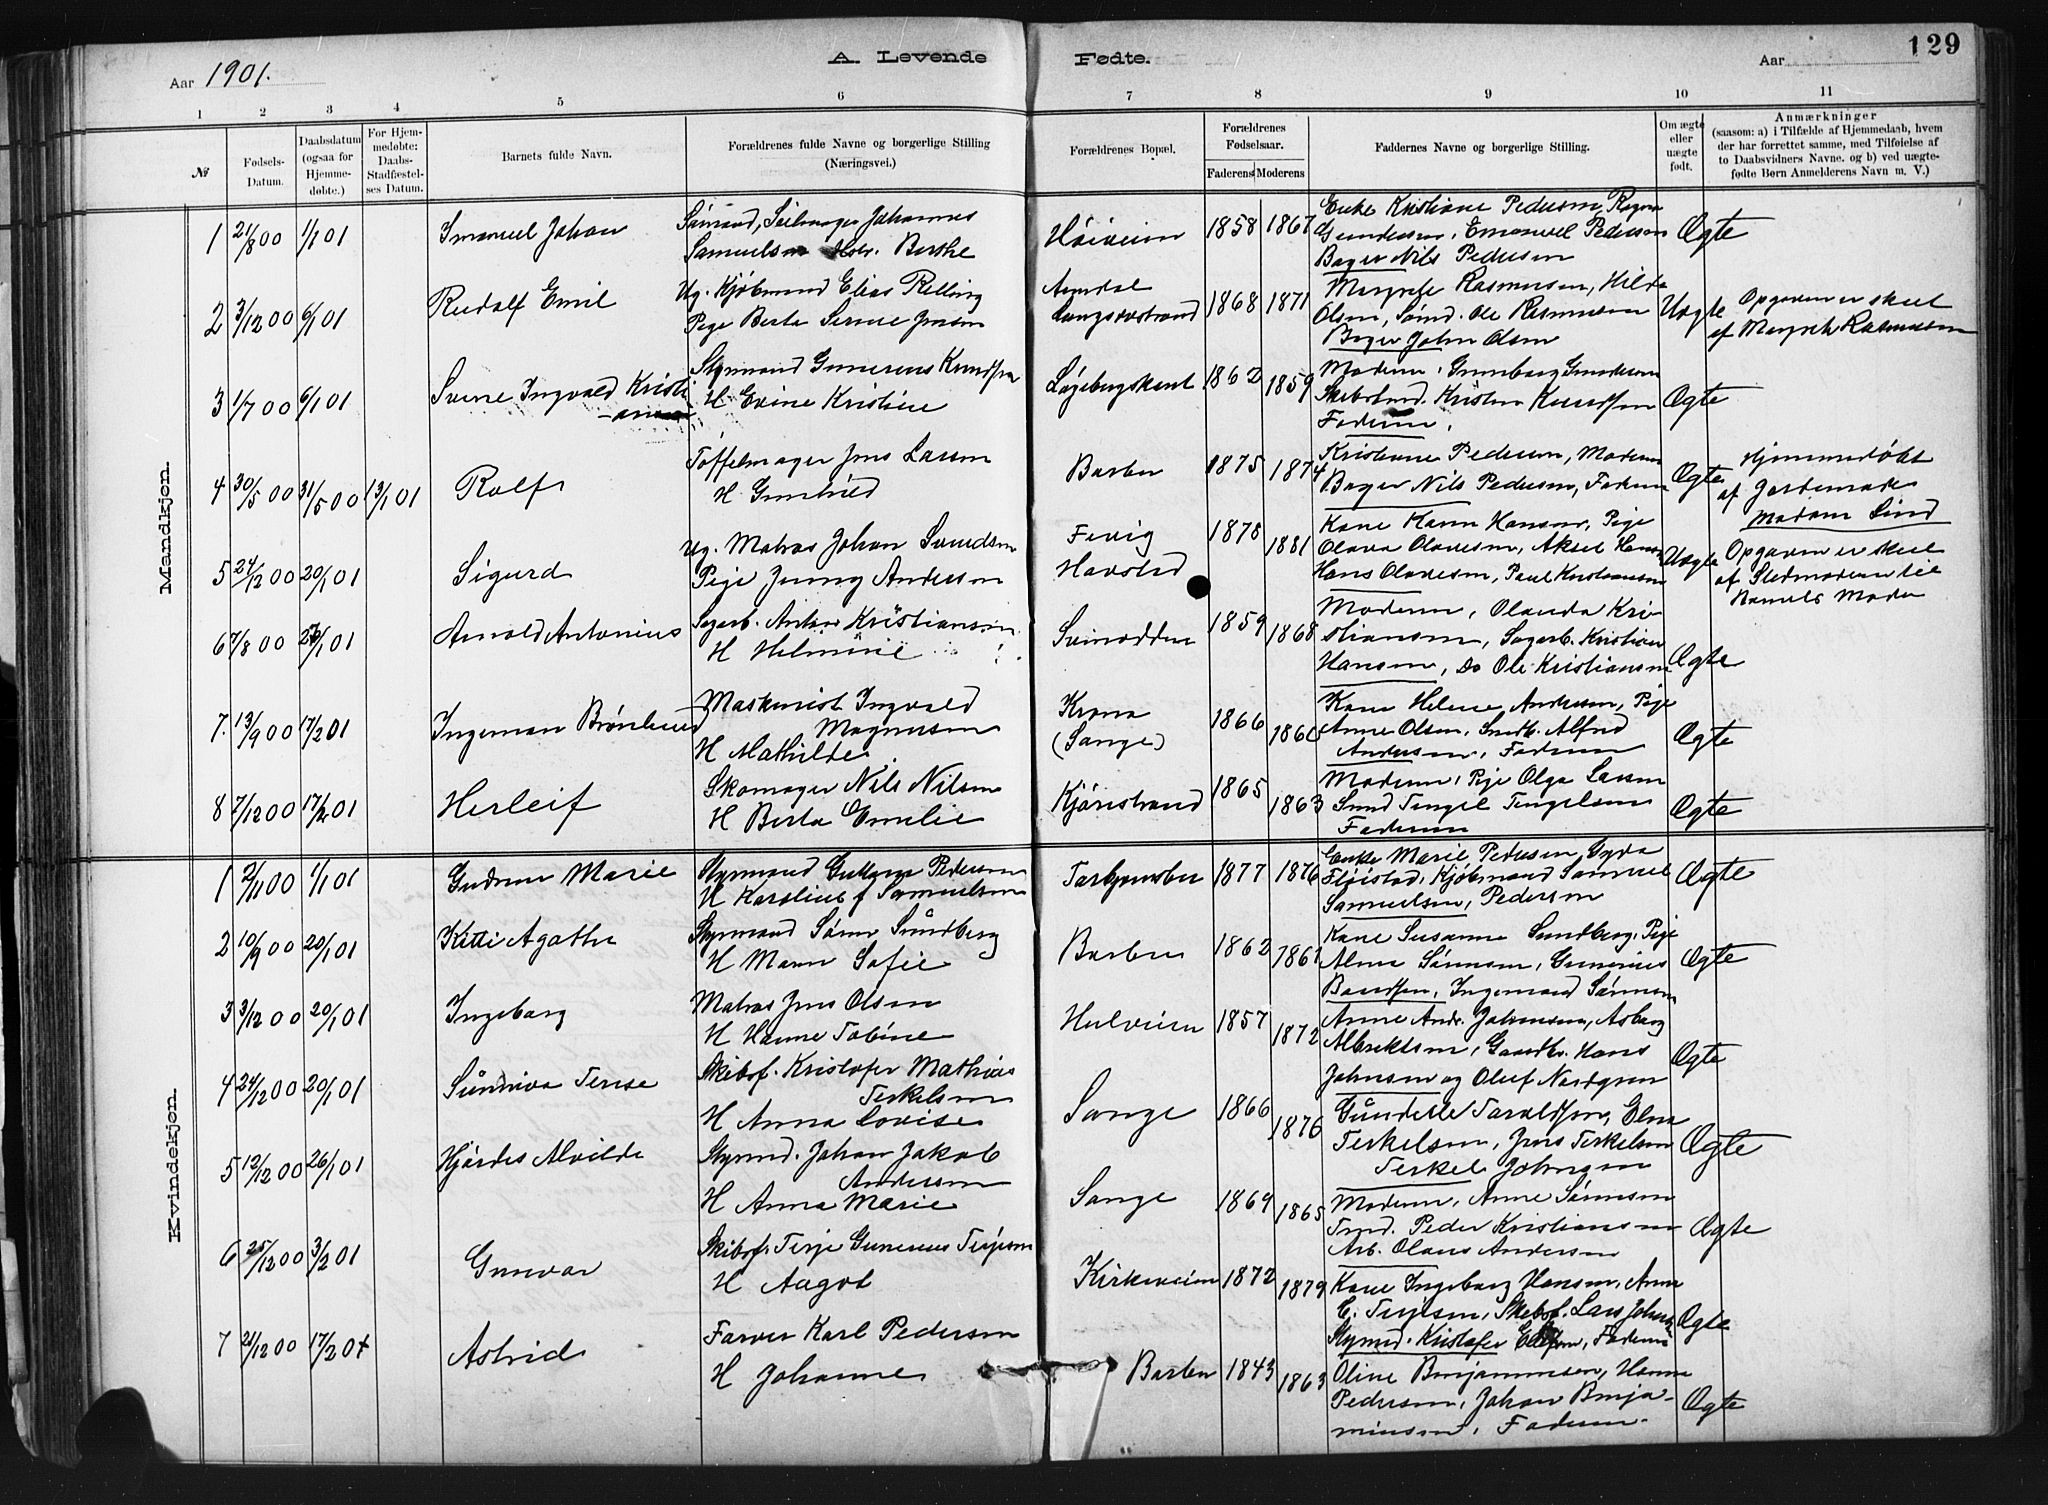 Aar 1901.
A. Levende Fødte.
Aar
129
1 2 3 4 5 6 7 8 9 10 11
№
Fødsels-Datum.
Daabsdatum (ogsaa for Hjemmedøbte.)
For Hjemmedøbte: Daabs-Stadfæstelses Datum.
Barnets fulde Navn.
Forældrenes fulde Navne og borgerlige Stilling (Næringsvei.)
Forældrenes Bopæl.
Forældrenes Fødselsaar.
Faderens Moderens
Faddernes Navne og borgerlige Stilling.
Om ægte eller uægte født.
Anmærkninger (saasom: a) i Tilfælde af Hjemmedaab, hvem der har forrettet samme, med Tilføielse af to Daabsvidners Navne. og b) ved uægtefødte Børn Anmelderens Navn m. V.)
Mandkjøn.
1 21/8 00 1/1 01 Imanuel Johan
Sømand, Seilmager Johannes
Samuelsen Hstr. Berthe
Høiveien 1858 1867
Enke Kristiane Pedersen, Ragna
Gundersen, Emanuel Pedersen
Bager Nils Pedersen
Ægte
2 3/12 00 6/1 01 Rudolf Emil
Ug. Kjøbmand Elias Relling
Pige Berta Serine Jensen
Arendal
Langsæstrand 1868 1871
Margrete Rasmussen, Hilda
Olsen, Sømd. Ole Rasmussen
Bager John Olsen
Uægte
Opgaven er skeet
af Margrete Rasmussen
3 1/7 00 6/1 01 Svene Ingvald Kristi
Styrmand Gunerius Knudsen
H Evine Kristine
1862 1859
Moderen, Gunborg Gundersen
Skibstmd. Kristen Knudsen
Faderen.
Ægte
4 30/5 00 31/5 00 13/1 01 Rolf
Tøffelmager Jens Larsen
H Gunhild
Barbu 1875 1874
Kristiane Pedersen, Moderen
Bager Nils Pedersen, Faderen
Ægte
Hjemmedøbt
af Jordemoder
Madam Lind
5 24/12 00 20/1 01 Sigurd
Ug. Matros Johan Svendsen
Pige Jenny Andersen
Fevig
Havsted 1878 1881
Kone Karen Hansen, Pige
Olava Olavesen, Aksel Hansen
Hans Olavesen, Paul Kristiansen
Uægte
Opgaven er skeet
af Stedmoderen til
Barnets Moder
6 7/8 00 27/1 01 Arnold Antonius
Sagarb. Anton Kristiansen
H Helmine
Svinodden 1859 1868
Moderen, Olanda Kri-
stiansen, Sagarb. Kristian
Hansen, Do Ole Kristiansen
Ægte
7. 13/9 00 17/2 01 Ingeman Brønlund
Maskinist Ingvald
Magnusen
H Mathilde
Krona
(Songe) 1866 1860
Kone Helene Andersen, Pige
Anne Olsen, Smedk. Alfred
Andersen, Faderen
Ægte
8 7/12 00 17/2 01 Herleif
Skomager Nils Nilsen
H Berta Emelie
Kjøristrand 1865 1863
Moderen, Pige Olga Larsen
Smed Tengel Tengelsen
Faderen
Ægte
Kvindekjøn.
1 2/11 00 1/1 01 Gudrun Marie
Styrmand Guttorm Pedersen
H Karoline f Samuelsen
Torbjørnsbu 1877 1876
Enke Marie Pedersen, Gyda
Fløistad, Kjøbmand Samuel
Samuelsen, Pedersen
Ægte
2 10/9 00 20/1 01 Kitti Agathe
Styrmand Søren Sundberg
H Maren Sofie
Barbu 1862 1861
Kone Susanne Sundberg, Pige
Alma Sørensen, Gunerius
Bendsen, Ingemand Sørensen
Ægte
3 3/12 00 20/1 01 Ingeborg
Matros Jens Olsen
H Hanne Tobine
Hulveien 1857 1872
Anne Andr. Johansen, Asborg
Albrektsen, Gaardbr. Hans
Johnsen og Oluf Nordgren
Ægte
4 24/12 00 20/1 01 Sunniva Terese
Skibsf. Kristofer Mathias
Terkelsen
H Anna Lovise
Songe 1866 1876
Gunhilde Taraldsen, Elna
Terkelsen, Jens Terkelsen
Terkel Johnsen
Ægte
5 12/12 00 26/1 01 Hjørdes Alvilde
Styrmd. Johan Jakob
Andersen
H Anna Marie
Songe 1869 1865
Moderen, Anne Sørensen
Tmd. Peder Kristiansen
Arb. Olaus Andersen
Ægte
6 25/12 00 3/2 01 Gunvor
Skibsf. Terje Gunerius Terjesen
H Aagot
Kirkeveien 1872 1879
Kone Ingeborg Hansen, Anna
C. Terjesen, Skibsf. Lars Johnsen
Styrmd. Kristofer Ellefsen, Faderen
Ægte
7 21/12 00 17/2 01 Astrid
Farver Karl Pedersen
H Johanne
Barbu 1843 1863
Oline Benjaminsen, Hanna
Pedersen, Johan Benja-
minsen, Faderen.
Ægte